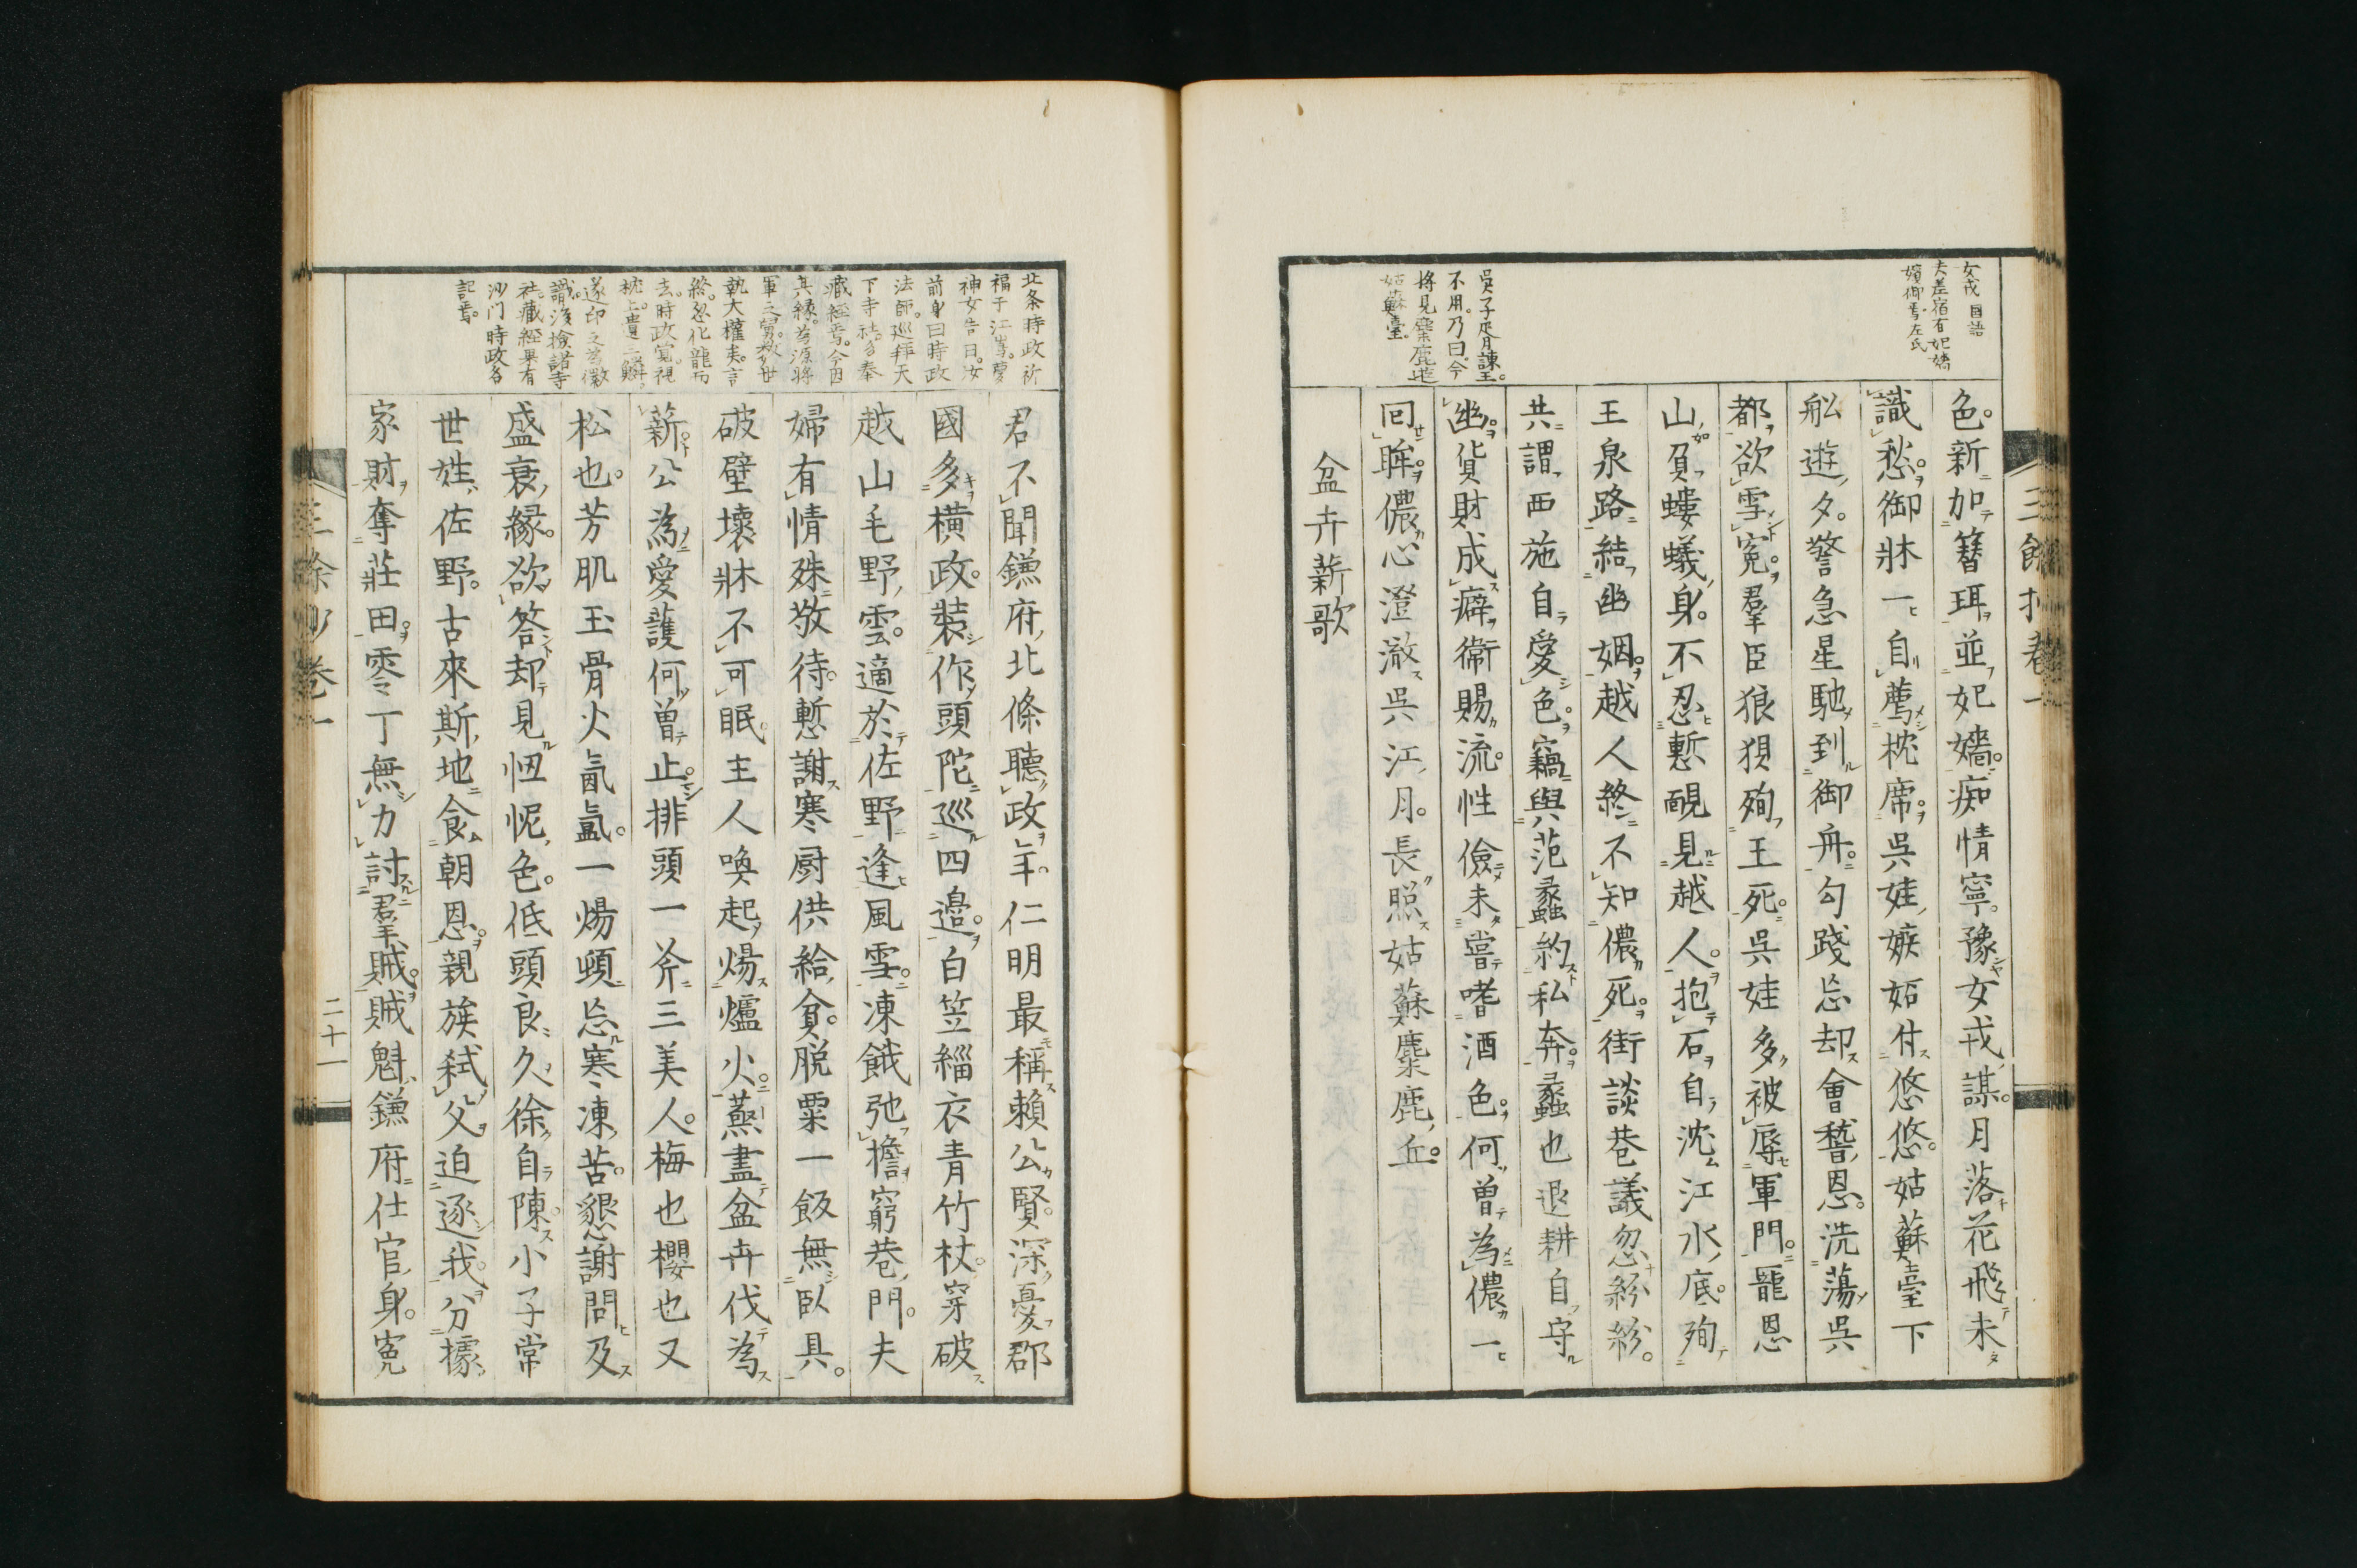 三餘抄卷一
女戎 國語
夫差宿有妃嬙
嬪御焉左氏
吳子胥諫王。
不用。乃曰。今
將見麋鹿遊
姑蘇臺。
色。新加簪珥並妃嬙。痴情寧豫女戎謀。月落花飛未
識愁。御牀一自薦枕席。吳娃嫉妬付悠悠。姑蘇臺下
舩遊夕。警急星馳到御舟。勾踐忘却會稽恩。洗蕩吳
都欲雪冤。羣臣狼狽殉王死。吳娃多被辱軍門。寵恩
山負螻蟻身。不忍慙靦見越人。抱石自沈江水底。殉
王泉路結幽姻。越人終不知儂死。街談巷議忽紛紛。
共謂西施自愛色。竊與范蠡約私奔。蠡也退耕自守
幽。貨財成癖衛賜流。性儉未嘗嗜酒色。何曾為儂一
回眸。儂心澄澈吳江月。長照姑蘇麋鹿丘。
盆卉薪歌
北条時政祈
福于江島。夢
神女告曰。汝
前身曰時政
法師。巡拜天
下寺社。多奉
藏經焉。今因
其緣。為源將
軍之舅。數世
執大權矣。言
終。忽化龍而
去。時政寤。視
枕上。遺三鱗。
遂印之為徽
識。後撿諸寺
社。藏經果有
沙门時政名
記焉。
君不聞鎌府北條聽政年。仁明最稱賴公賢。深憂郡
國多橫政。裝作頭陀巡四邊。白笠緇衣青竹杖。穿破
越山毛野雲。適於佐野逢風雪。凍餓弛擔窮巷門。夫
婦有情殊敬待。慙謝寒厨供給貧。脱粟一飯無臥具。
破壁壞牀不可眠。主人喚起煬爐火。爇盡盆卉伐為
薪。公為愛護何曾止。排頭一斧三美人。梅也櫻也又
松也。芳肌玉骨火氤氳。一煬頓忘寒凍苦。懇謝問及
盛衰緣。欲答却見忸怩色。低頭良久徐自陳。小子常
世姓佐野。古來斯地食朝恩。親族弒父迫逐我。分據
家財奪莊田。零丁無力討羣賊。賊魁鎌府仕官身。冤
三餘抄卷一
二十一